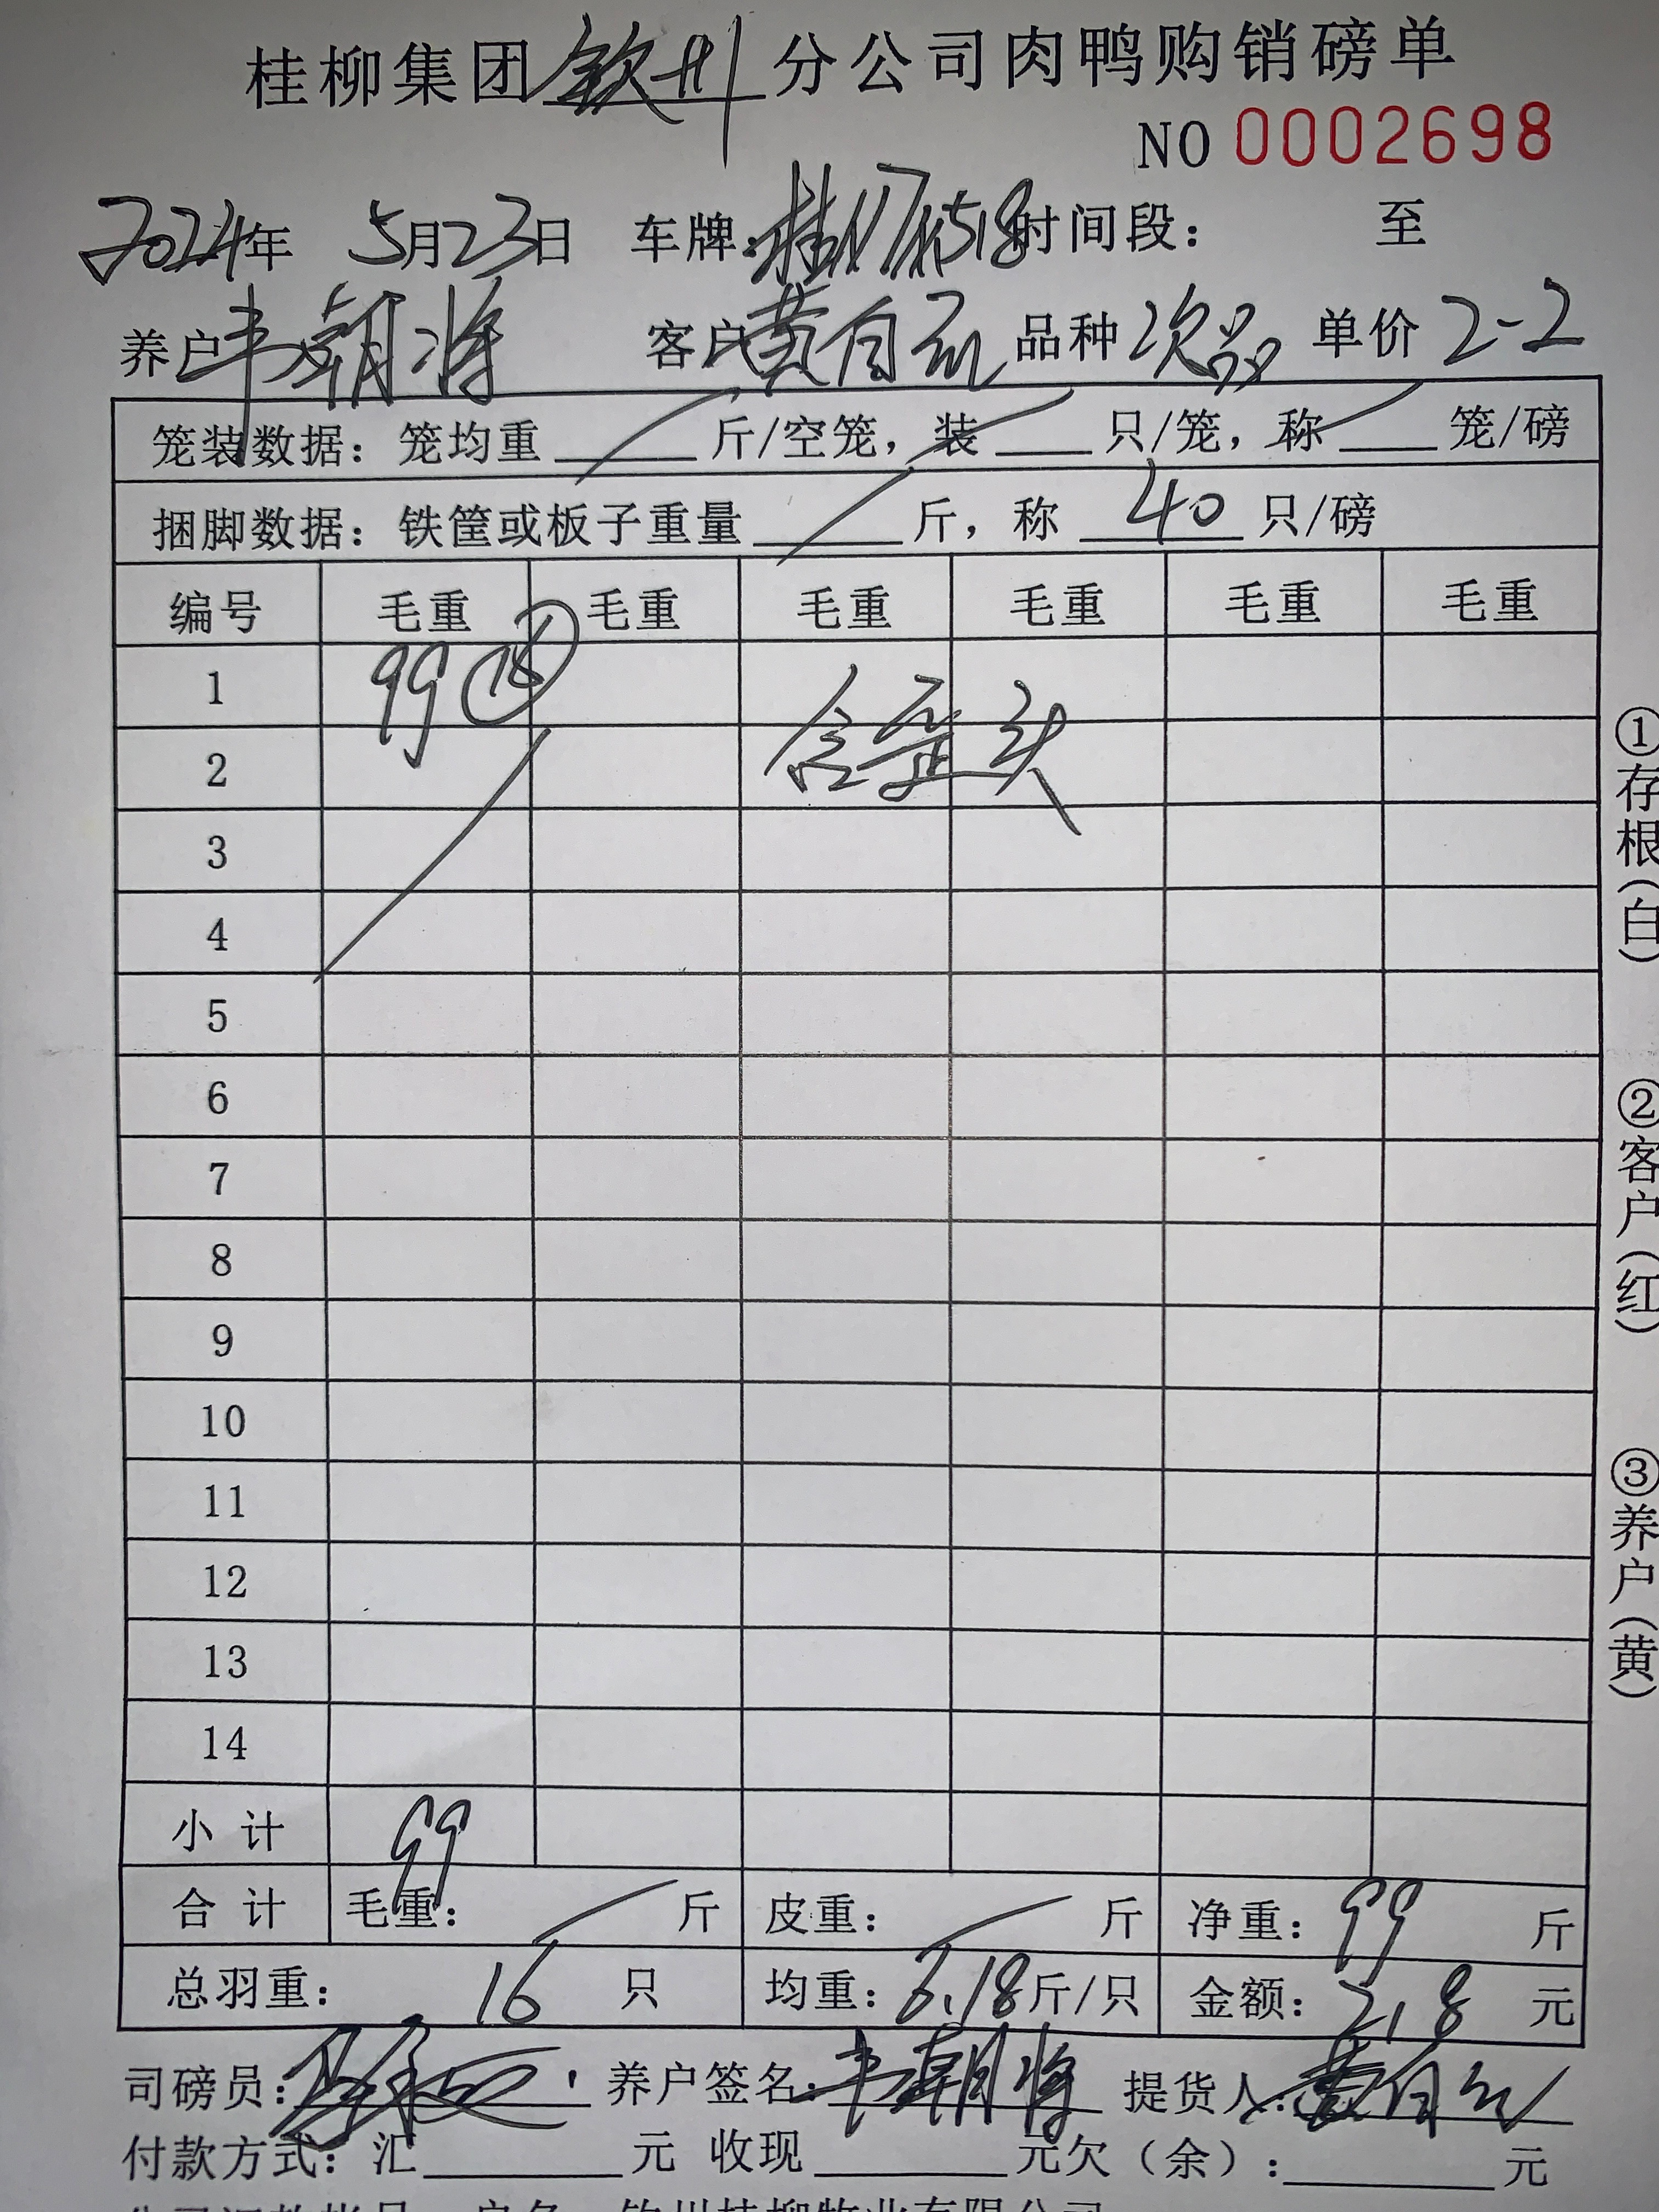 桂柳集团钦州分公司肉鸭购销磅单
NO 0002698
2024年 5月23日 车牌: 时间段: 至
养户韦朝将 客户黄自 品种次品 单价2-2
笼装数据: 笼均重 斤/空笼, 装 只/笼, 称 笼/磅
捆脚数据: 铁筐或板子重量 斤, 称 40 只/磅
编号 毛重 毛重 毛重 毛重 毛重 毛重
1 99
含歪头
2
3
4
5
6
7
8
9
10
11
12
13
14
小计 99
合计 毛重: 斤 皮重: 斤 净重: 99 斤
总羽重: 16 只 均重: 6.18斤/只 金额: 元
司磅员: 养户签名: 韦朝将 提货人: 黄自
付款方式: 汇 元 收现 元欠(余): 元
①存根(白)
②客户(红)
③养户(黄)